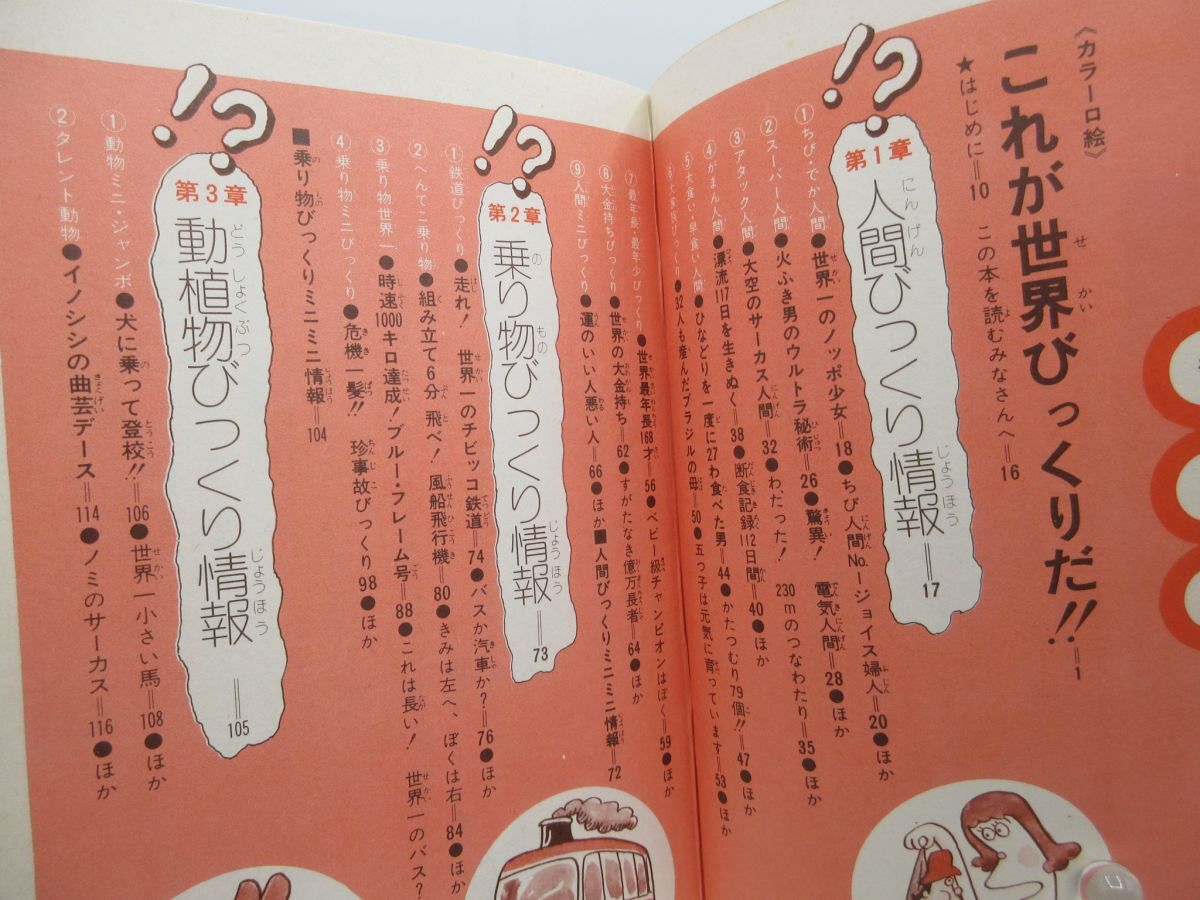 《カラー口絵》
これが世界びっくりだ!!＝1
★はじめに＝10 この本を読むみなさんへ＝16
!?
第1章
人間びっくり情報＝17
①ちび・でか人間●世界一のノッポ少女＝18●ちび人間No.1ジョイス婦人＝20●ほか
②スーパー人間●火ふき男のウルトラ秘術＝26●驚異！ 電気人間＝28●ほか
③アタック人間●大空のサーカス人間＝32●わたった！ 230mのつなわたり＝35●ほか
④がまん人間●漂流117日を生きぬく＝38●断食記録112日間＝40●ほか
⑤大食い・早食い人間●ひなどりを一度に27わ食べた男＝44●かたつむり79個!!＝47●ほか
⑥大家族びっくり●32人も産んだブラジルの母＝50●五つ子は元気に育っています＝53●ほか
⑦最年長・最年少びっくり●世界最年長168才＝56●ベビー級チャンピオンはぼく＝59●ほか
⑧大金持ちびっくり●世界の大金持ち＝62●すがたなき億万長者＝64●ほか
⑨人間ミニびっくり●運のいい人悪い人＝66●ほか■人間びっくりミニミニ情報＝72
!?
第2章
乗り物びっくり情報＝73
①鉄道びっくり●走れ！ 世界一のチビッコ鉄道＝74●バスか汽車か？＝76●ほか
②へんてこ乗り物●組み立て6分 飛べ！風船飛行機＝80●きみは左へ、ぼくは右＝84●ほか
③乗り物世界一●時速1000キロ達成！ブルー・フレーム号＝88●これは長い！ 世界一のバス？
④乗り物ミニびっくり●危機一髪!! 珍事故びっくり98●ほか
■乗り物びっくりミニミニ情報＝104
!?
第3章
動植物びっくり情報＝105
①動物ミニ・ジャンボ●犬に乗って登校!!＝106●世界一小さい馬＝108●ほか
②タレント動物●イノシシの曲芸デース＝114●ノミのサーカス＝116●ほか